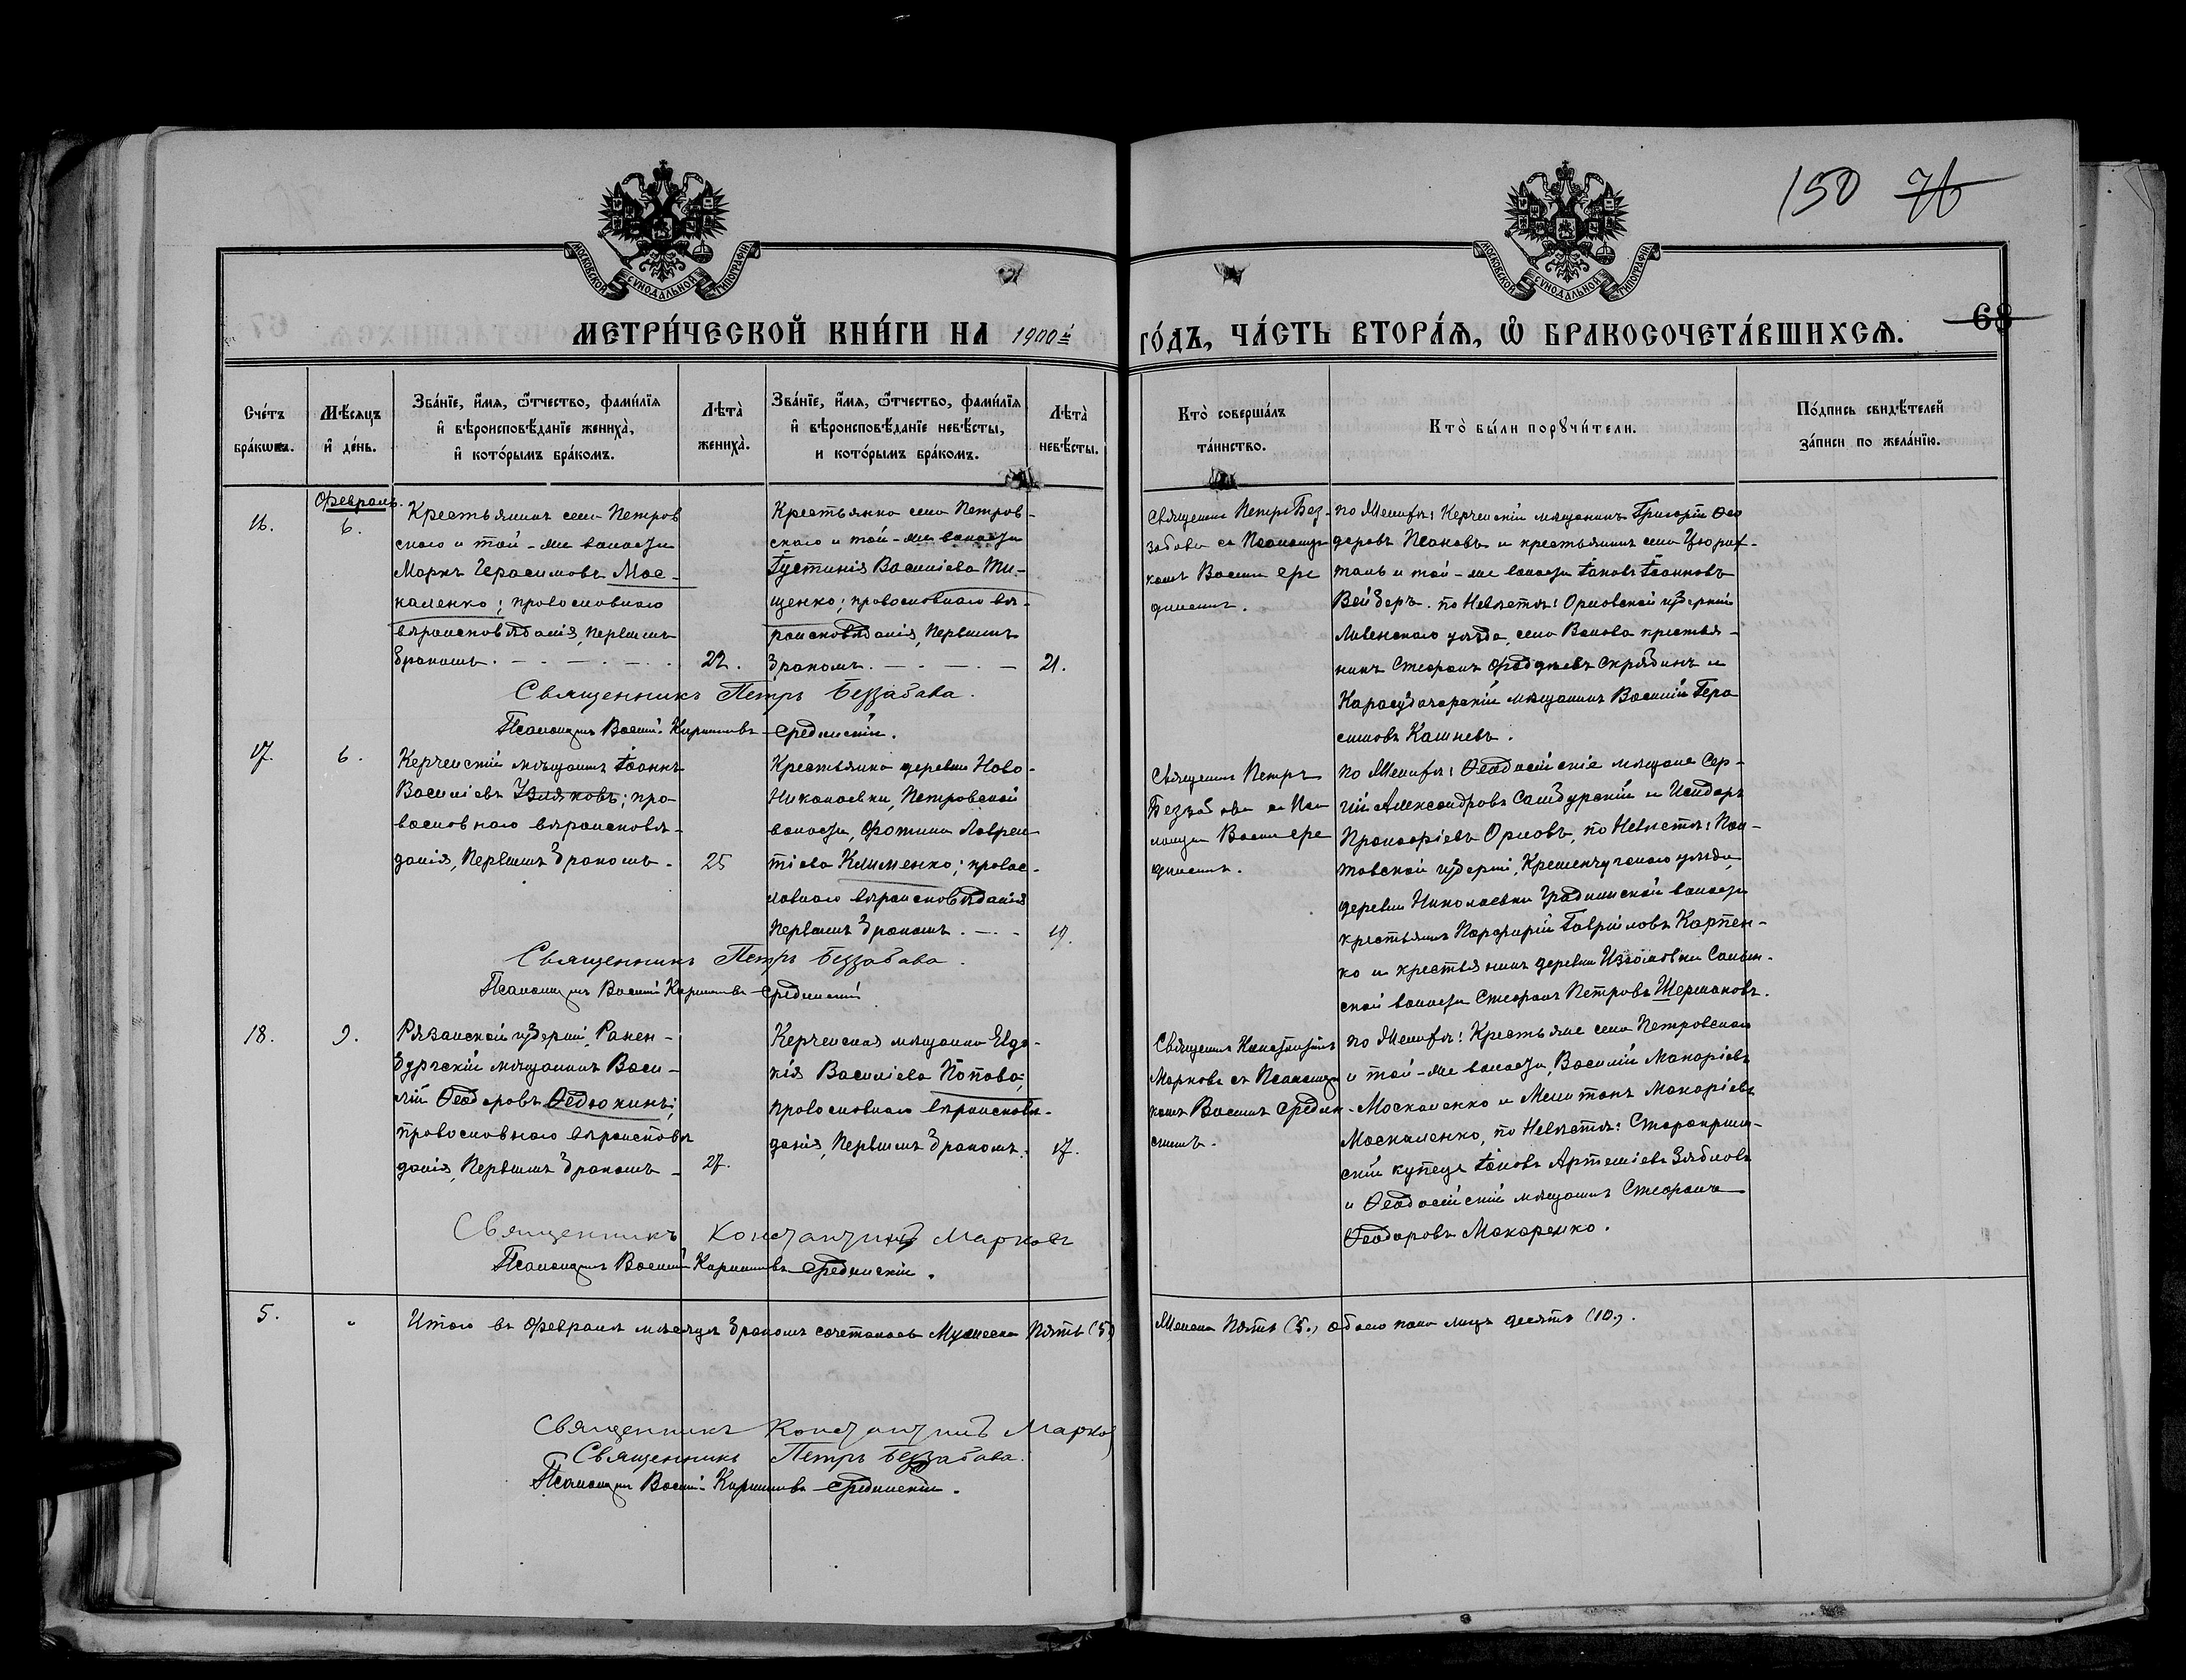 150 76
МОСКОВСКОЙ СѴНОДАЛЬНОЙ ТИПОГРАФІИ
МОСКОВСКОЙ СѴНОДАЛЬНОЙ ТИПОГРАФІИ
МЕТРИ́ЧЕСКОЙ КНИ́ГИ НА 1900й
ГО́ДЪ, ЧА́СТЬ ВТОРА́Ѧ, Ѡ҆ БРАКОСОЧЕТА́ВШИХСѦ.
68
Сче́тъ
бра́кѡвъ.
Мѣ́сѧцъ
и҆ де́нь.
Зва́нїе, и҆́мѧ, ѻ҆́тчество, фамилїѧ
и҆ вѣроисповѣ́данїе жениха̀,
и҆ кото́рымъ бра́комъ.
Лѣ́та
жениха̀.
Зва́нїе, и҆́мѧ, ѻ҆́тчество, фамилїѧ
и҆ вѣроисповѣ́данїе невѣ́сты,
и кото́рымъ бра́комъ.
Лѣ́та
невѣ́сты.
Кто̀ соверша́лъ
та́инство.
Кто̀ бы́ли порꙋчи́тели.
По́дпись свидѣ́телей
за́писи по жела́нїю.
16.
Февраль.
6.
Крестьянинъ села Петров
скаго и той-же волости
Маркъ Герасимовъ Мос-
каленко; православнаго
вѣроисповѣданія, первымъ
бракомъ.
22.
Крестьянка села Петров-
скаго и той-же волости
Іустинія Василіева Ти-
щенко; православнаго вѣ-
роисповѣданія, первымъ
бракомъ.
21.
Священникъ Петръ Без-
забава съ Псаломщи
комъ Васил Сре
динскимъ.
по Женихѣ: Керченскій мѣщанинъ Григорій Ѳео
доровъ Псановъ и крестьянинъ села Цюрих-
таль и той-же волости Іаковъ Іоанновъ
Вейберъ. по Невѣстѣ: Орловской губерніи
Ливенскаго уѣзда, села Волова крестья-
нинъ Стефанъ Фаддѣевъ Скрябинъ и
Карасубазарскій мѣщанинъ Василій Гера
симовъ Кашневъ.
Священникъ Петръ Беззабава.
Псаломщикъ Василій Кирилловъ Срединскій.
17.
6.
Керченскій мѣщанинъ Іоаннъ
Василіевъ Узляковъ; пра-
вославнаго вѣроисповѣ-
данія, первымъ бракомъ.
25
Крестьянка деревни Ново-
Николаевки, Петровской
волости, Фотина Лаврен
тіева Клименко; правос-
лавнаго вѣроисповѣданія
первымъ бракомъ.
19.
Священникъ Петръ
Беззабава съ Пса
ломщи Васил Сре
динскимъ.
по Женихѣ: Ѳеодосійскіе мѣщане Сер-
гій Александровъ Самбурскій и Исидоръ
Прокофіевъ Орловъ, по Невѣстѣ: Пол-
тавской губерніи, Кременчугскаго уѣзда
деревни Николаевки Градижской волости
крестьянинъ Порфирій Гавріиловъ Карпен-
ко и крестьянинъ деревни
ской волости Стефанъ Петровъ Шермановъ.
Священникъ Петръ Беззабава.
Псаломщикъ Василій Кирилловъ Срединскій
18.
9.
Рязанской губерніи, Ранен-
бургскій мѣщанинъ Васи-
лій Ѳеодоровъ Ѳедюкинъ;
православнаго вѣроисповѣ
данія, первымъ бракомъ
27.
Керченская мѣщанка Евдо-
кія Василіева Попова;
православнаго вѣроисповѣ-
данія, первымъ бракомъ.
17.
Священникъ Константинъ
Марковъ съ Псаломщи
комъ Васил Средин
скимъ.
по Женихѣ: Крестьяне села Петровскаго
и той-же волости, Василій Макаріевъ
Москаленко и Мелитонъ Макаріевъ
Москаленко, по Невѣстѣ: Старокрым-
скій купецъ Іаковъ Артеміевъ Зябловъ
и Ѳеодосійскій мѣщанинъ Стефанъ
Ѳеодоровъ Макаренко.
Священникъ Константинъ Марковъ
Псаломщикъ Василій Кирилловъ Срединскій.
5.
Итого въ Февралѣ мѣсяцѣ бракомъ сочеталось Мужеска пять (5) Женска пять (5.) обоего пола лицъ десять (10.).
Священникъ Константинъ Марковъ
Священникъ Петръ Беззабава.
Псаломщикъ Василій Кирилловъ Срединскій.